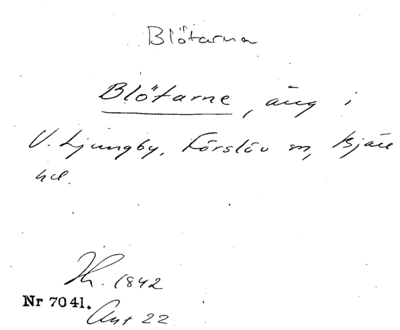 Blötarna
Blötarne, äng i
V. Ljungby, Förslöv sn, Bjäre
hd.
H. 1842
Nr 7041.
Akt 22